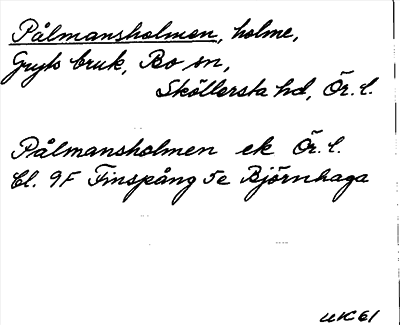 Pålmansholmen, holme,
Gryts bruk, Bo sn,
Sköllersta hd, Ör. l.
Pålmansholmen ek Ör. l.
Bl. 9F Finspång 5e Björnhaga
UK61